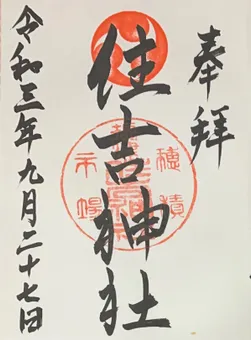 奉拝
住吉神社
穂積
令和三年九月二十七日